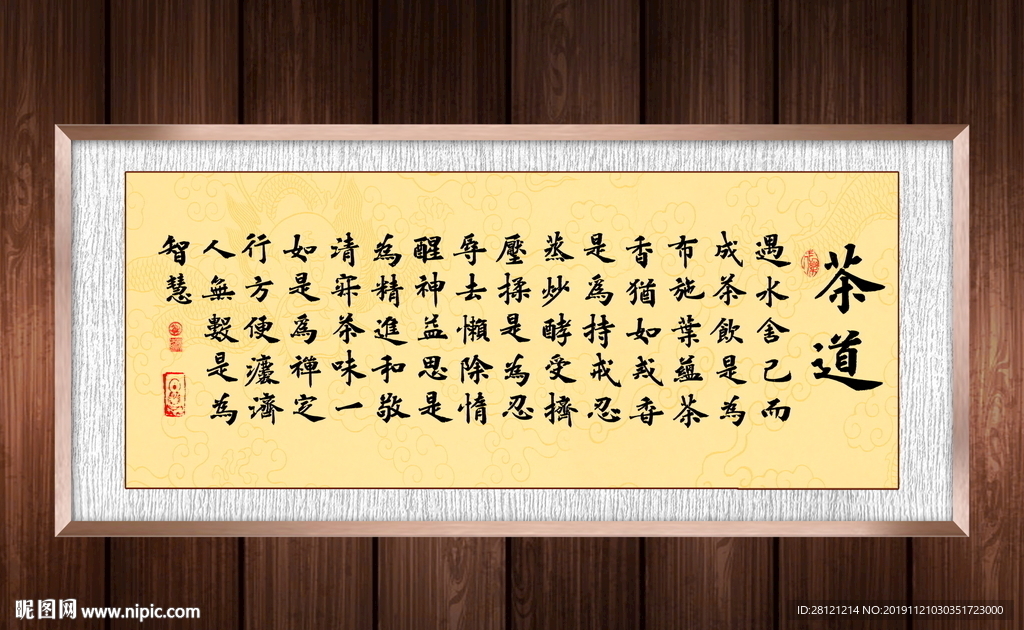 茶道
遇水舍己而
成茶飲是為
布施葉蘊茶
香猶如戒香
是為持戒忍
蒸炒酵受擠
壓揉是為忍
辱去懶除惰
醒神益思是
為精進和敬
清寂茶味一
如是為禪定
行方便濟
人無數是為
智慧
昵图网 www.nipic.com
ID:28121214 NO:20191121030351723000